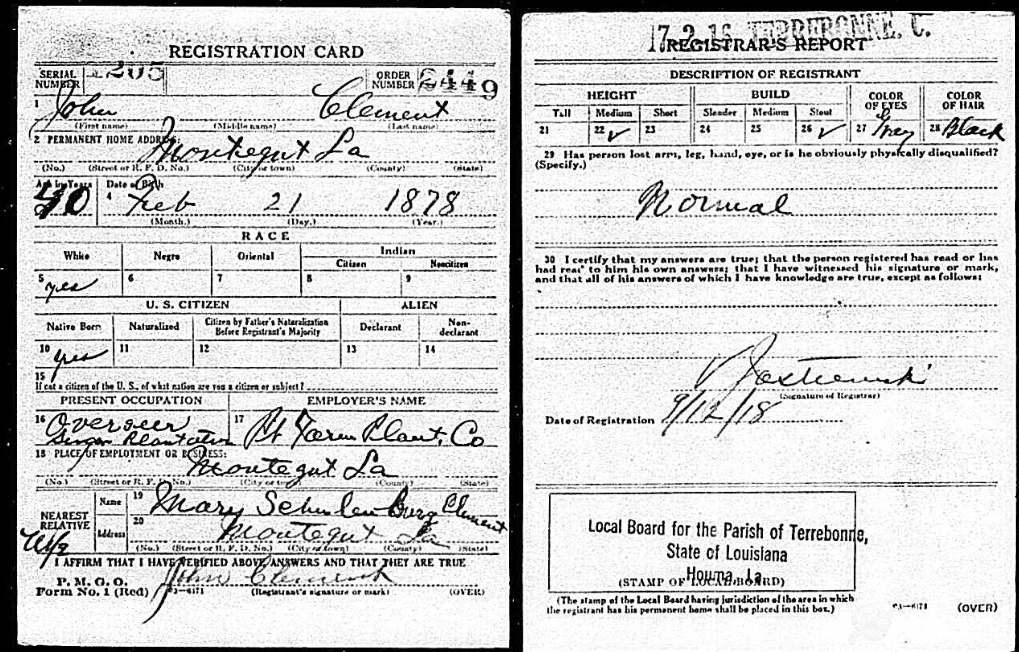 REGISTRATION CARD
SERIAL NUMBER 1205 ORDER NUMBER 2449
1 John Clement
(First name) (Middle name) (Last name)
2 PERMANENT HOME ADDRESS:
Montegut La
(No.) (Street or R. F. D. No.) (City or town) (County) (State)
Age in Years Date of Birth
40 4 Feb 21 1878
(Month.) (Day.) (Year.)
RACE
White Negro Oriental Indian
Citizen Noncitizen
5 yes 6 7 8 9
U. S. CITIZEN ALIEN
Native Born Naturalized Citizen by Father's Naturalization Before Registrant's Majority Declarant Non-declarant
10 yes 11 12 13 14
15
If not a citizen of the U. S., of what nation are you a citizen or subject?
PRESENT OCCUPATION EMPLOYER'S NAME
16 Overseer 17 Pt Farm Plant. Co
Plantation
18 PLACE OF EMPLOYMENT OR BUSINESS:
Montegut La
(No.) (Street or R. F. D. No.) (City or town) (County) (State)
NEAREST RELATIVE Name 19 Mary Schulenburg Clement
Wife Address 20 Montegut La
(No.) (Street or R. F. D. No.) (City or town) (County) (State)
I AFFIRM THAT I HAVE VERIFIED ABOVE ANSWERS AND THAT THEY ARE TRUE
P. M. G. O.
Form No. 1 (Red) 03—6171 John Clement
(Registrant's signature or mark) (OVER)
17-2-16 TERREBONNE, C.
REGISTRAR'S REPORT
DESCRIPTION OF REGISTRANT
HEIGHT BUILD COLOR OF EYES COLOR OF HAIR
Tall Medium Short Slender Medium Stout
21 22 ✓ 23 24 25 26 ✓ 27 Grey 28 Black
29 Has person lost arm, leg, hand, eye, or is he obviously physically disqualified?
(Specify.)
Normal
30 I certify that my answers are true; that the person registered has read or has
had read to him his own answers; that I have witnessed his signature or mark,
and that all of his answers of which I have knowledge are true, except as follows:
(Signature of Registrar)
Date of Registration 9/12/18
Local Board for the Parish of Terrebonne,
State of Louisiana
Houma, La.
(STAMP OF LOCAL BOARD)
(The stamp of the Local Board having jurisdiction of the area in which
the registrant has his permanent home shall be placed in this box.)
03—6171 (OVER)